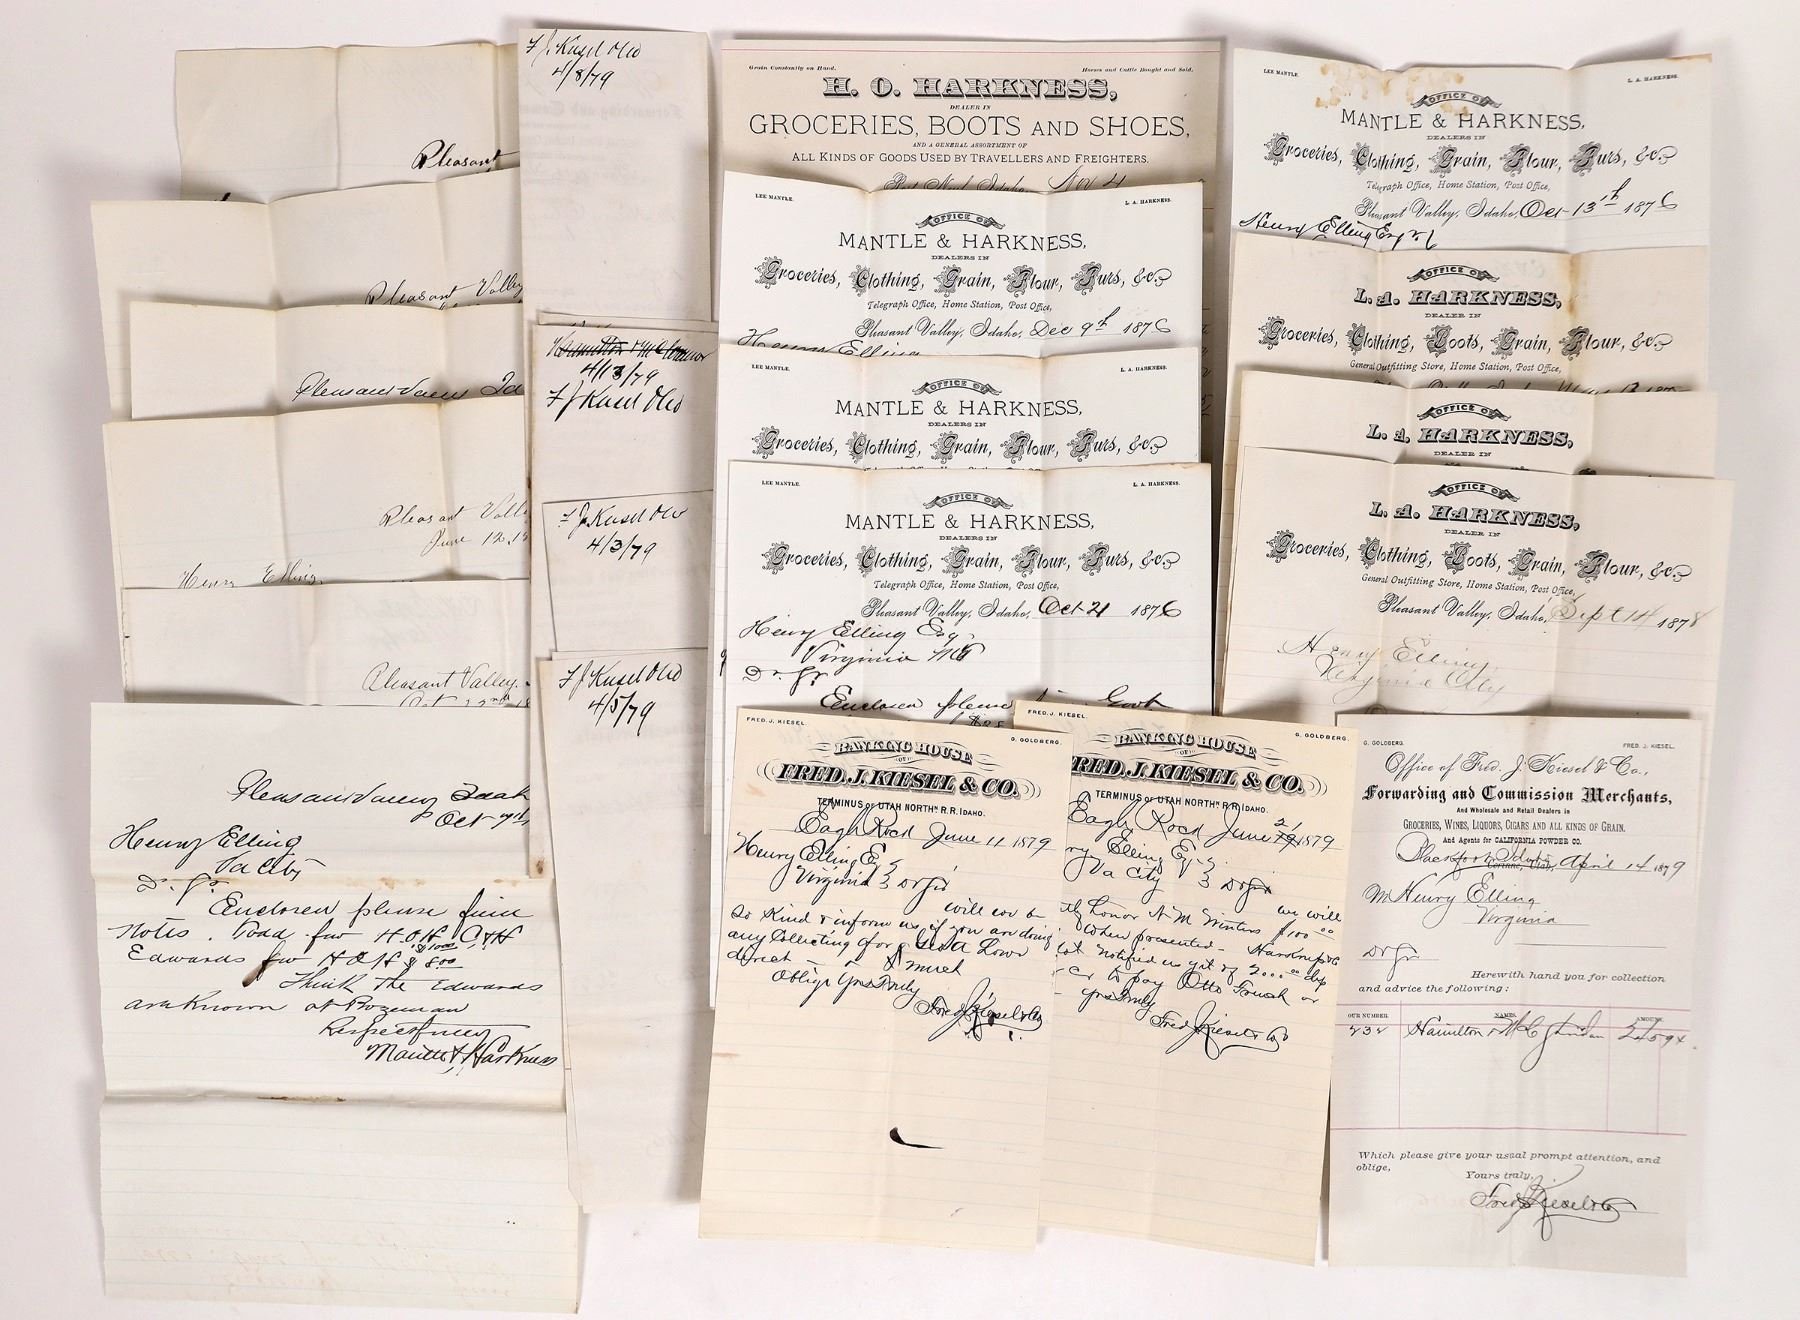 Pleasant
Pleasant Valley
Pleasant Valley
Pleasant Vall
June 12, 18
Henry Elling,
Pleasant Valley,
Oct 22nd 18
Oct
Henry Elling
Va City
Dr Sr
Enclosed please find
Notes. Todd fav H.O.H. $10.00
Edwards fav H O H $ 8.00
Think the Edwards
are known at Bozeman
Respectfully
Mantle & Harkness
F J Kiesel & Co
4/8/79
4/13/79
F J Kiesel & Co
F J Kiesel & Co
4/3/79
F J Kiesel & Co
4/5/79
Grain Constantly on Hand.
Horses and Cattle Bought and Sold.
H. O. HARKNESS,
DEALER IN
GROCERIES, BOOTS AND SHOES,
AND A GENERAL ASSORTMENT OF
ALL KINDS OF GOODS USED BY TRAVELLERS AND FREIGHTERS.
Nov 4
LEE MANTLE.
L. A. HARKNESS.
OFFICE OF
MANTLE & HARKNESS,
DEALERS IN
Groceries, Clothing, Grain, Flour, Furs, &c.
Telegraph Office, Home Station, Post Office,
Pleasant Valley, Idaho, Dec 9th 1876
Henry Elling
LEE MANTLE.
L. A. HARKNESS.
OFFICE OF
MANTLE & HARKNESS,
DEALERS IN
Groceries, Clothing, Grain, Flour, Furs, &c.
LEE MANTLE.
L. A. HARKNESS.
OFFICE OF
MANTLE & HARKNESS,
DEALERS IN
Groceries, Clothing, Grain, Flour, Furs, &c.
Telegraph Office, Home Station, Post Office,
Pleasant Valley, Idaho, Oct 21 1876
Henry Elling Esq.
Virginia MT
Dr Sr
Enclosed please
LEE MANTLE.
L. A. HARKNESS.
OFFICE OF
MANTLE & HARKNESS,
DEALERS IN
Groceries, Clothing, Grain, Flour, Furs, &c.
Telegraph Office, Home Station, Post Office,
Pleasant Valley, Idaho, Oct 13th 1876
Henry Elling Esq
OFFICE OF
L. A. HARKNESS,
DEALER IN
Groceries, Clothing, Boots, Grain, Flour, &c.
General Outfitting Store, Home Station, Post Office,
OFFICE OF
L. A. HARKNESS,
DEALER IN
OFFICE OF
L. A. HARKNESS,
DEALER IN
Groceries, Clothing, Boots, Grain, Flour, &c.
General Outfitting Store, Home Station, Post Office,
Pleasant Valley, Idaho, Sept 14 1878
Henry Elling
Virginia City
FRED. J. KIESEL.
G. GOLDBERG.
BANKING HOUSE
OF
FRED. J. KIESEL & CO.
TERMINUS OF UTAH NORTHN R.R. IDAHO.
Eagle Rock June 11 1879
Henry Elling Esq
Virginia Dr Sir
will you be
so kind & inform us if you are doing
any collecting for
direct - & much
Oblige Yrs Truly
Fred J Kiesel & Co
FRED. J. KIESEL.
G. GOLDBERG.
BANKING HOUSE
OF
FRED. J. KIESEL & CO.
TERMINUS OF UTAH NORTHN R.R. IDAHO.
Eagle Rock June 21 1879
ry Elling Esq
Va City Dr Sir
we will
honor N M Winters $100.00
When presented -
not notified us yet of
to pay Otto or
Yrs Truly
Fred J Kiesel & Co
G. GOLDBERG.
FRED. J. KIESEL.
Office of Fred. J. Kiesel & Co.,
Forwarding and Commission Merchants,
And Wholesale and Retail Dealers in
GROCERIES, WINES, LIQUORS, CIGARS AND ALL KINDS OF GRAIN.
And Agents for CALIFORNIA POWDER CO.
Blackfoot Idaho April 14 1879
Mr Henry Elling
Virginia
Dr Sr
Herewith hand you for collection
and advice the following:
OUR NUMBER.
NAMES.
AMOUNT.
232 Hamilton &
Which please give your usual prompt attention, and
oblige,
Yours truly,
Fred J Kiesel & Co